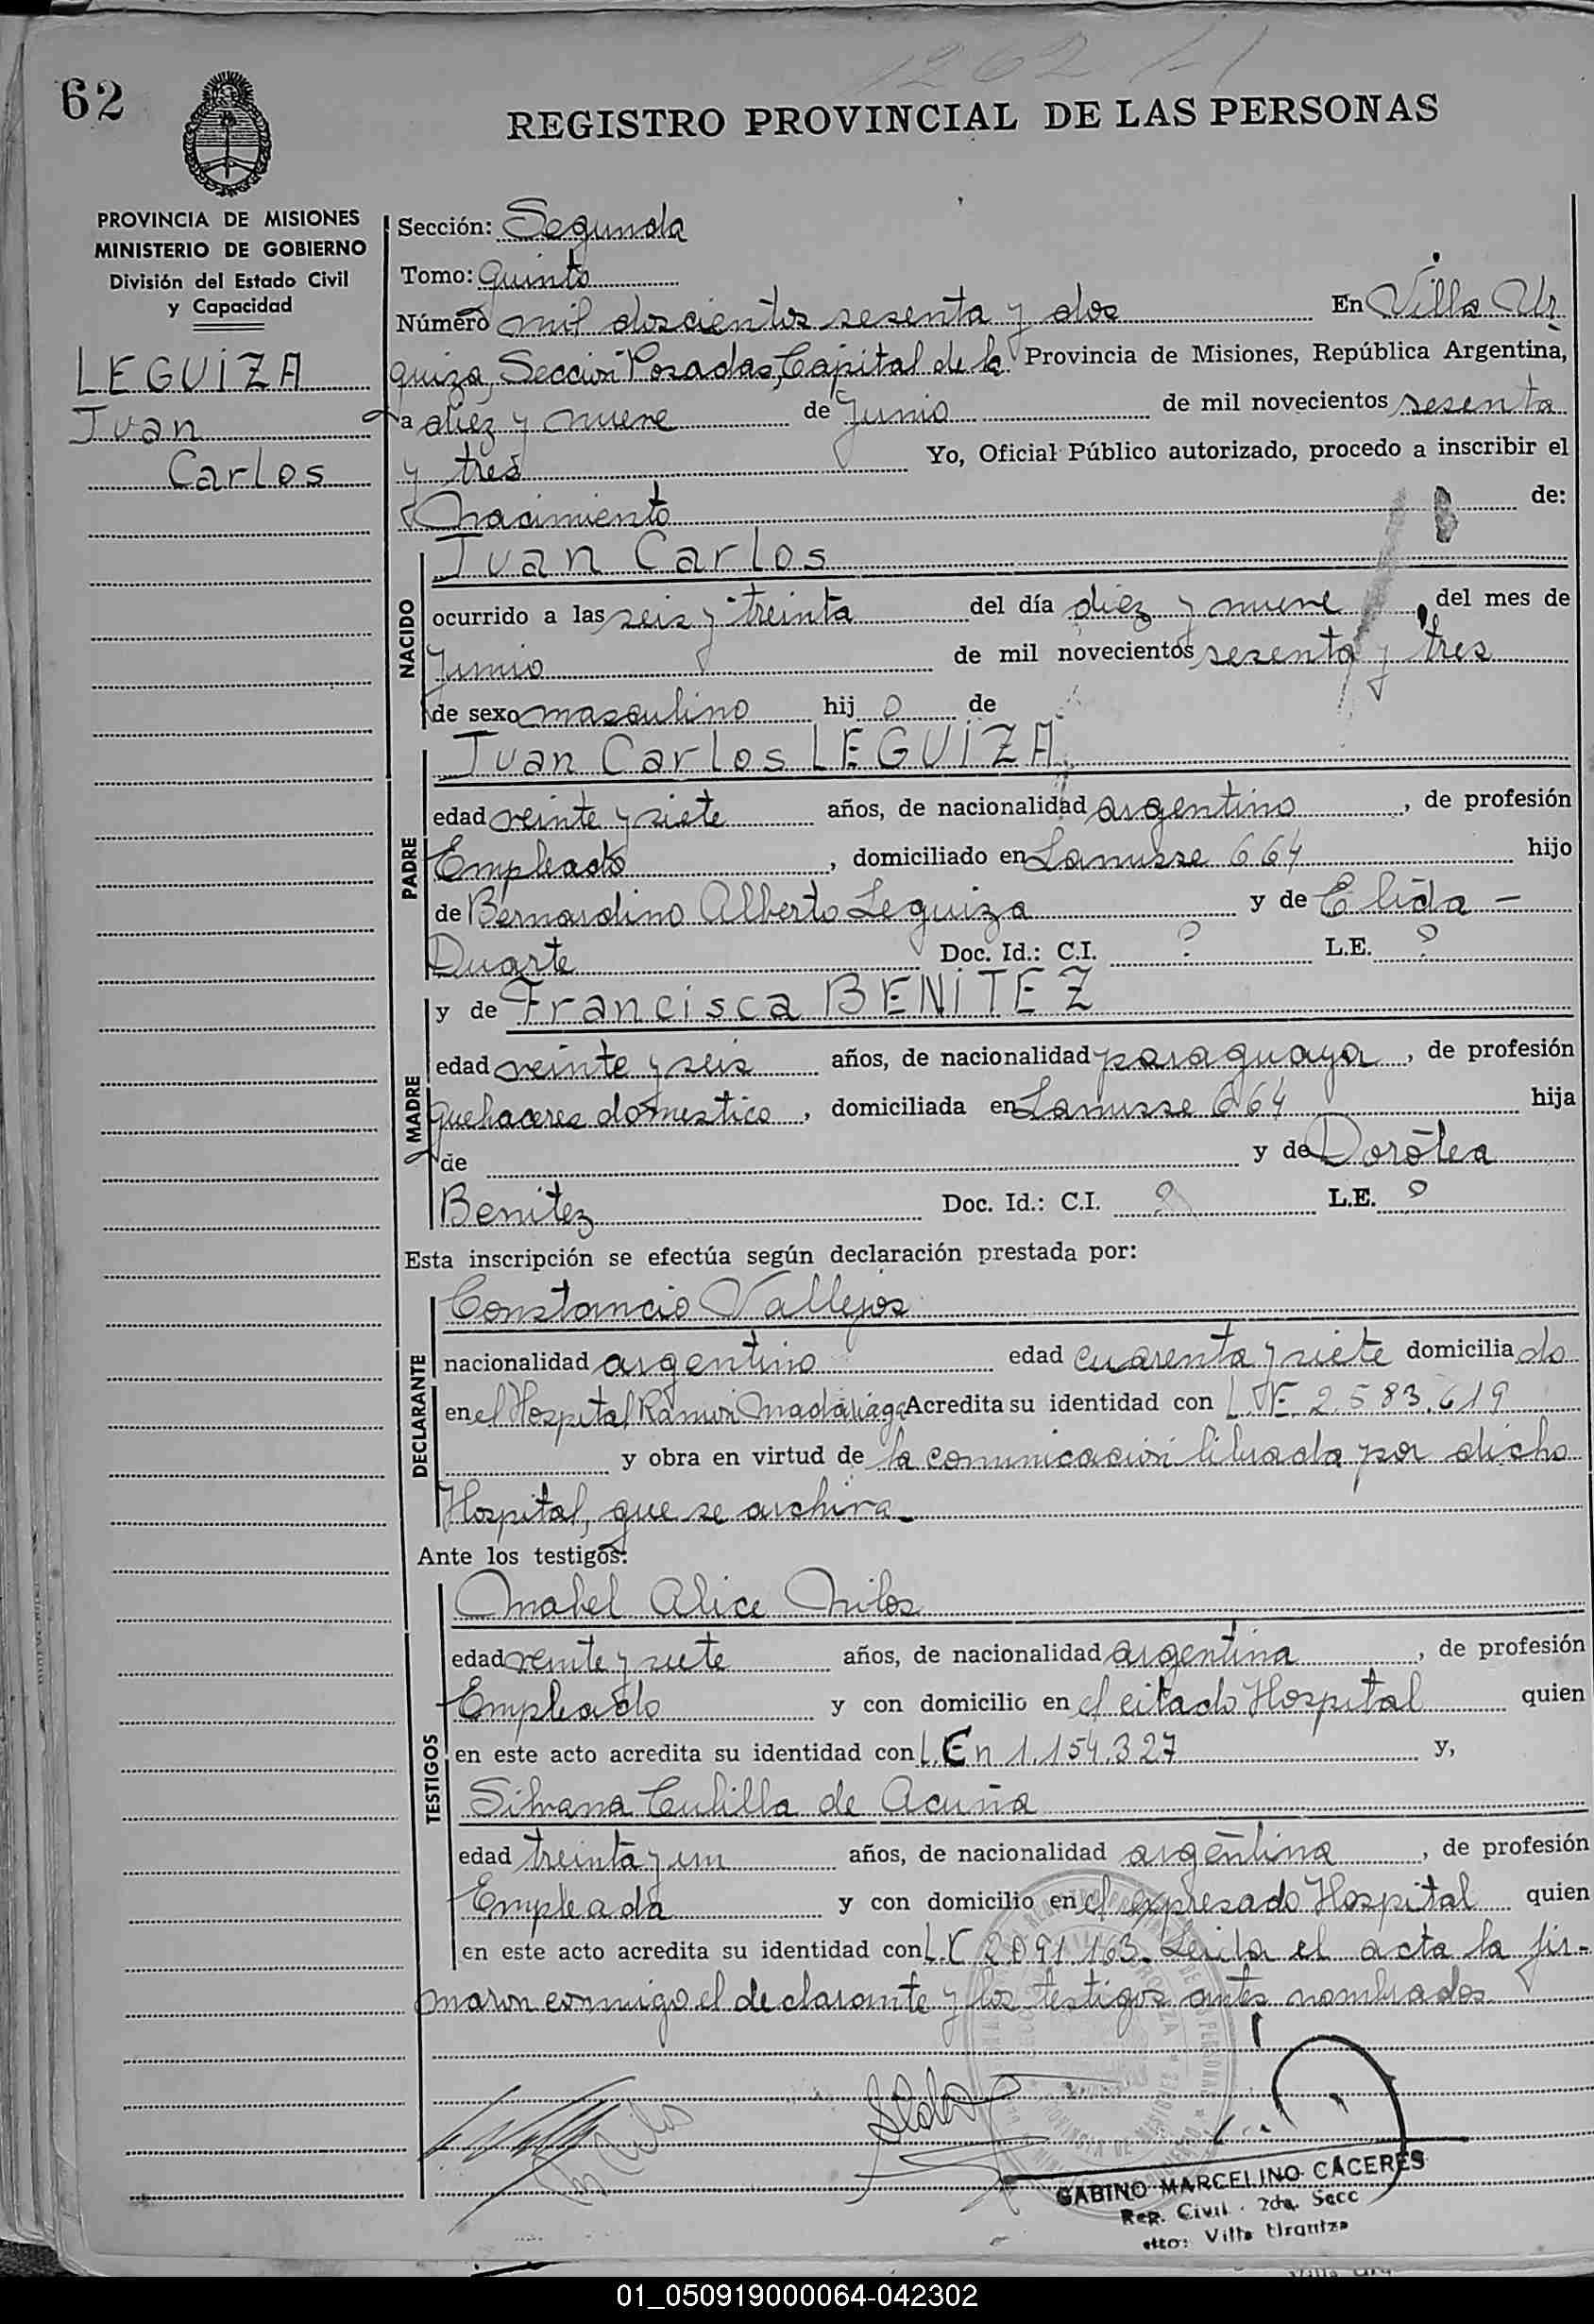 1262
62
REGISTRO PROVINCIAL DE LAS PERSONAS
PROVINCIA DE MISIONES
MINISTERIO DE GOBIERNO
División del Estado Civil
y Capacidad
LEGUIZA
Juan
Carlos
Sección: Segunda
Tomo: Quinto
Número mil doscientos sesenta y dos En Villa Ur
quiza, Sección Posadas, Capital de la Provincia de Misiones, República Argentina,
a diez y nueve de Junio de mil novecientos sesenta
y tres Yo, Oficial Público autorizado, procedo a inscribir el
Nacimiento de:
NACIDO
Juan Carlos
ocurrido a las seis y treinta del día diez y nueve del mes de
Junio de mil novecientos sesenta y tres
de sexo masculino hij o de
PADRE
Juan Carlos LEGUIZA
edad veinte y siete años, de nacionalidad argentino, de profesión
Empleado, domiciliado en Lanusse 664 hijo
de Bernardino Alberto Leguiza y de Elida -
Duarte Doc. Id.: C.I. ? L.E. ?
MADRE
y de Francisca BENITEZ
edad veinte y seis años, de nacionalidad paraguaya, de profesión
quehaceres domestico, domiciliada en Lanusse 664 hija
de y de Dorotea
Benitez Doc. Id.: C.I. ? L.E. ?
Esta inscripción se efectúa según declaración prestada por:
DECLARANTE
Constancio Vallejos
nacionalidad argentino edad cuarenta y siete domicilia do
en el Hospital Ramón Madariaga Acredita su identidad con L.E. 2.583.619
y obra en virtud de la comunicación librada por dicho
Hospital, que se archiva.
Ante los testigos:
TESTIGOS
Mabel Alice Milos
edad veinte y siete años, de nacionalidad argentina, de profesión
Empleado y con domicilio en el citado Hospital quien
en este acto acredita su identidad con L.E n 1.154.327 y,
Silvana Cubilla de Acuña
edad treinta y un años, de nacionalidad argentina, de profesión
Empleada y con domicilio en el expresado Hospital quien
en este acto acredita su identidad con L.C 2091.163. Leida el acta la fir-
maron conmigo el declarante y los testigos antes nombrados
GABINO MARCELINO CACERES
Reg. Civil . 2da. Secc
Villa Urquiza
01_050919000064-042302